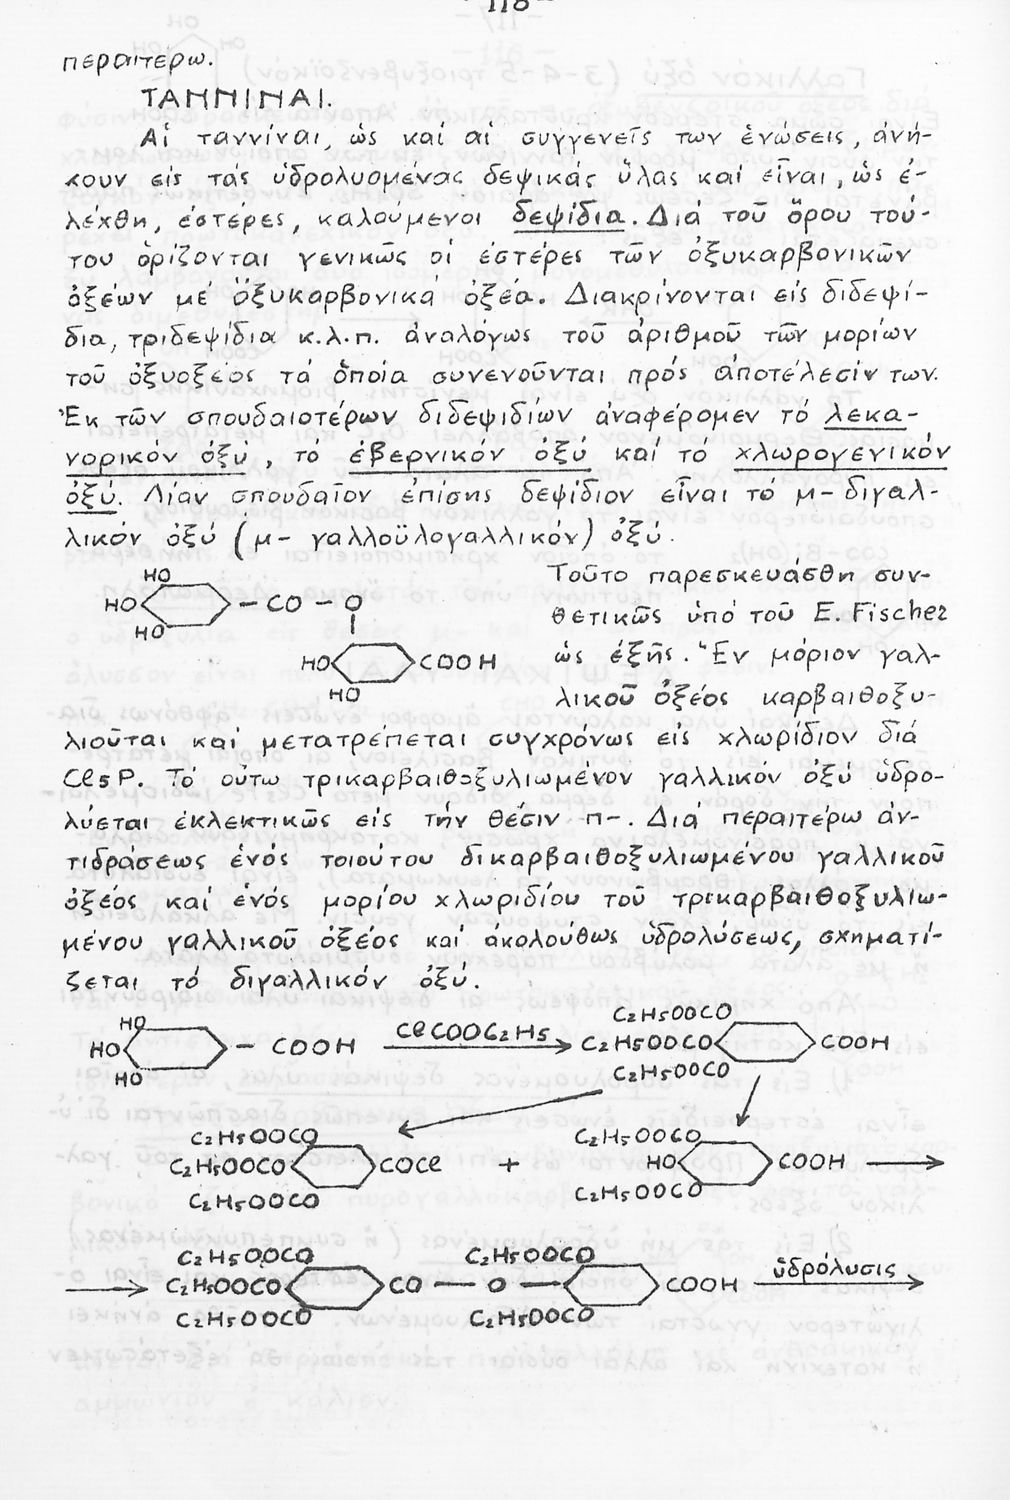 - 118 -
περαιτέρω.
ΤΑΝΝΙΝΑΙ.
Αἱ ταννίναι, ὡς καί αι συγγενεῖς των ἑνώσεις, ἀνή-
κουν εἰς τάς ὑδρολυομένας δεψικάς ὕλας καί εἶναι, ὡς ἐ-
λέχθη, ἐστέρες, καλούμενοι δεψίδια. Διά τοῦ ὅρου τού-
του ὁρίζονται γενικῶς οἱ ἐστέρες τῶν ὀξυκαρβονικῶν
ὀξέων μέ ὀξυκαρβονικά ὀξέα. Διακρίνονται εἰς διδεψί-
δια, τριδεψίδια κ.λ.π. ἀναλόγως τοῦ ἀριθμοῦ τῶν μορίων
τοῦ ὀξυοξέος τά ὁποία συνενοῦνται πρός ἀποτέλεσίν των.
Ἐκ τῶν σπουδαιοτέρων διδεψιδίων ἀναφέρομεν τό λεκα-
νορικόν ὀξύ, τό ἐβερνικόν ὀξύ καί τό χλωρογενικόν
ὀξύ. Λίαν σπουδαῖον ἐπίσης δεψίδιον εἶναι τό μ-διγαλ-
λικόν ὀξύ (μ- γαλλοϋλογαλλικόν) ὀξύ.
HO
HO
HO
- CO - O
HO
HO
COOH
Τοῦτο παρεσκευάσθη συν-
θετικῶς ὑπό τοῦ E. Fischer
ὡς ἑξῆς. Ἕν μόριον γαλ-
λικοῦ ὀξέος καρβαιθοξυ-
λιοῦται καί μετατρέπεται συγχρόνως εἰς χλωρίδιον διά
Cl5P. Τό οὕτω τρικαρβαιθοξυλιωμένον γαλλικόν ὀξύ ὑδρο-
λύεται ἐκλεκτικῶς εἰς τήν θέσιν π-. Διά περαιτέρω ἀν-
τιδράσεως ἑνός τοιούτου δικαρβαιθοξυλιωμένου γαλλικοῦ
ὀξέος καί ἑνός μορίου χλωριδίου τοῦ τρικαρβαιθοξυλιω-
μένου γαλλικοῦ ὀξέος καί ἀκολούθως ὑδρολύσεως, σχηματί-
ζεται τό διγαλλικόν ὀξύ.
HO
HO
HO
- COOH
ClCOOC2H5
C2H5OOCO
C2H5OOCO
C2H5OOCO
COOH
C2H5OOCO
C2H5OOCO
C2H5OOCO
COCl
+
C2H5OOCO
HO
C2H5OOCO
COOH
C2H5OOCO
C2H5OOCO
C2H5OOCO
CO — O —
C2H5OOCO
C2H5OOCO
COOH
ὑδρόλυσις